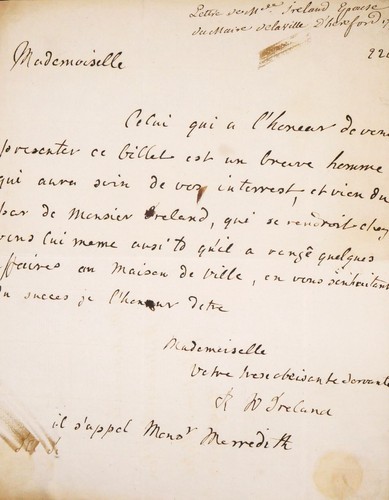 Lettre de Mde Ireland Epouse
du Maire de la ville D'hereford
220
Mademoiselle
Celui qui a l'honeur de vous
presenter ce billet est un brave homme
qui aura soin de vos interrest, et vien du
par de Monsier Ireland, qui se rendroit chez
vous lui meme ausitò qu'il a rangé quelques
affaires au Maison de ville, en vous souhaitant
du succes je l'honeur d'etre
Mademoiselle
Votre tres obeisante Servante
W Ireland
il s'appel Monsr Merredith